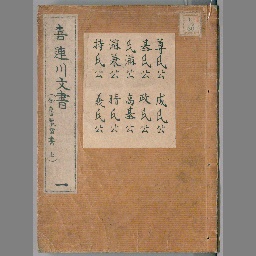 尊氏公 成氏公
基氏公 政氏公
氏滿公 高基公
滿兼公 晴氏公
持氏公 義氏公
喜連川文書
一